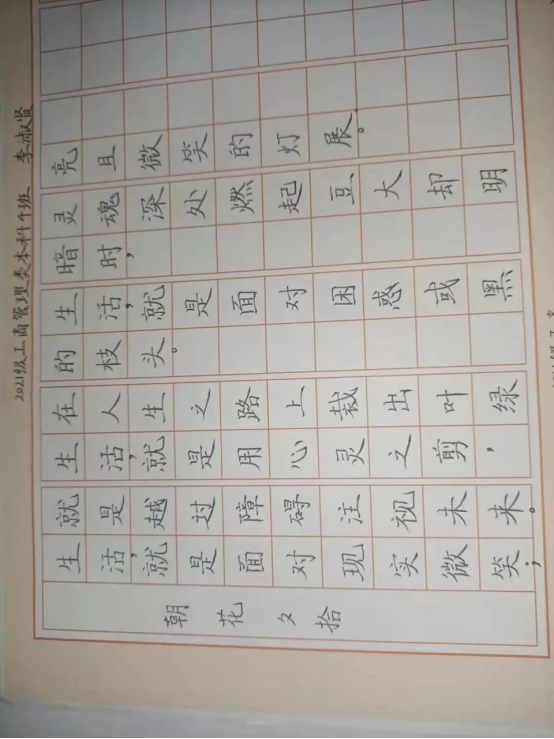 朝花夕拾
生活,就是面对现实微笑;
就是越过障碍注视未来。
生活,就是用心灵之剪,
在人生之路上裁出叶绿
的枝头。
生活,就是面对困惑或黑
暗时,
灵魂深处燃起豆大却明
亮且微笑的灯展。
2021级工商管理类本科班 李淑贤